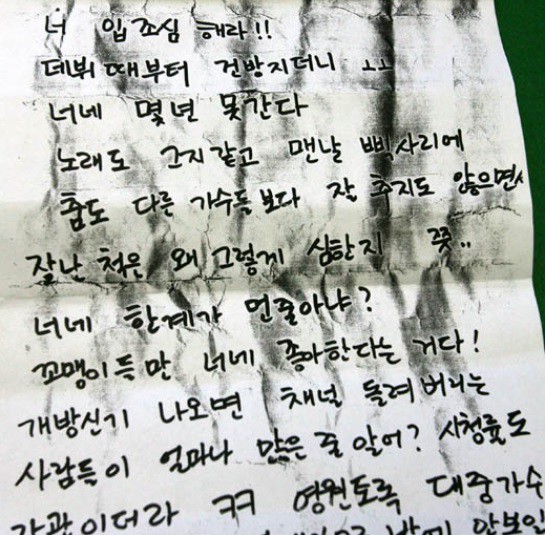 너 입조심 해라!!
데뷔때부터 건방지더니 ㅗㅗ
너네 몇년 못간다
노래도 그지같고 맨날 삑사리에
춤도 다른 가수들 보다 잘 추지도 않으면서
잘난 척은 왜 그렇게 심한지 쯧..
너네 한계가 먼줄아냐?
꼬맹이들만 너네 좋아한다는 거다!
개방신기 나오면 채널 돌려버리는
사람들이 얼마나 많은 줄 알어? 시청률도
가관이더라 ㅋㅋ 영원토록 대중가수
안보일